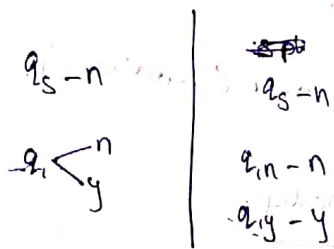 q₅ – n
q₁ < n
y
q₅ – n
q₁n – n
q₁y – y